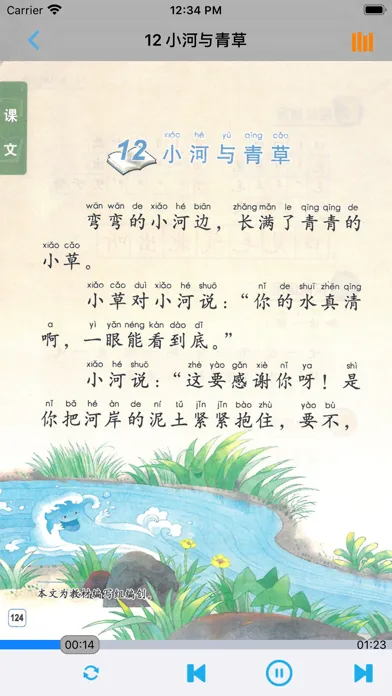 Carrier 12:34 PM
12 小河与青草
课文
xiǎo hé yǔ qīng cǎo
12 小河与青草
wān wān de xiǎo hé biān zhǎng mǎn le qīng qīng de
弯弯的小河边，长满了青青的
xiǎo cǎo
小草。
xiǎo cǎo duì xiǎo hé shuō nǐ de shuǐ zhēn qīng
小草对小河说：“你的水真清
a yì yǎn néng kàn dào dǐ
啊，一眼能看到底。”
xiǎo hé shuō zhè yào gǎn xiè nǐ ya shì
小河说：“这要感谢你呀！是
nǐ bǎ hé àn de ní tǔ jǐn jǐn bào zhù yào bù
你把河岸的泥土紧紧抱住，要不，
本文为教材编写组编创。
124
00:14 01:23